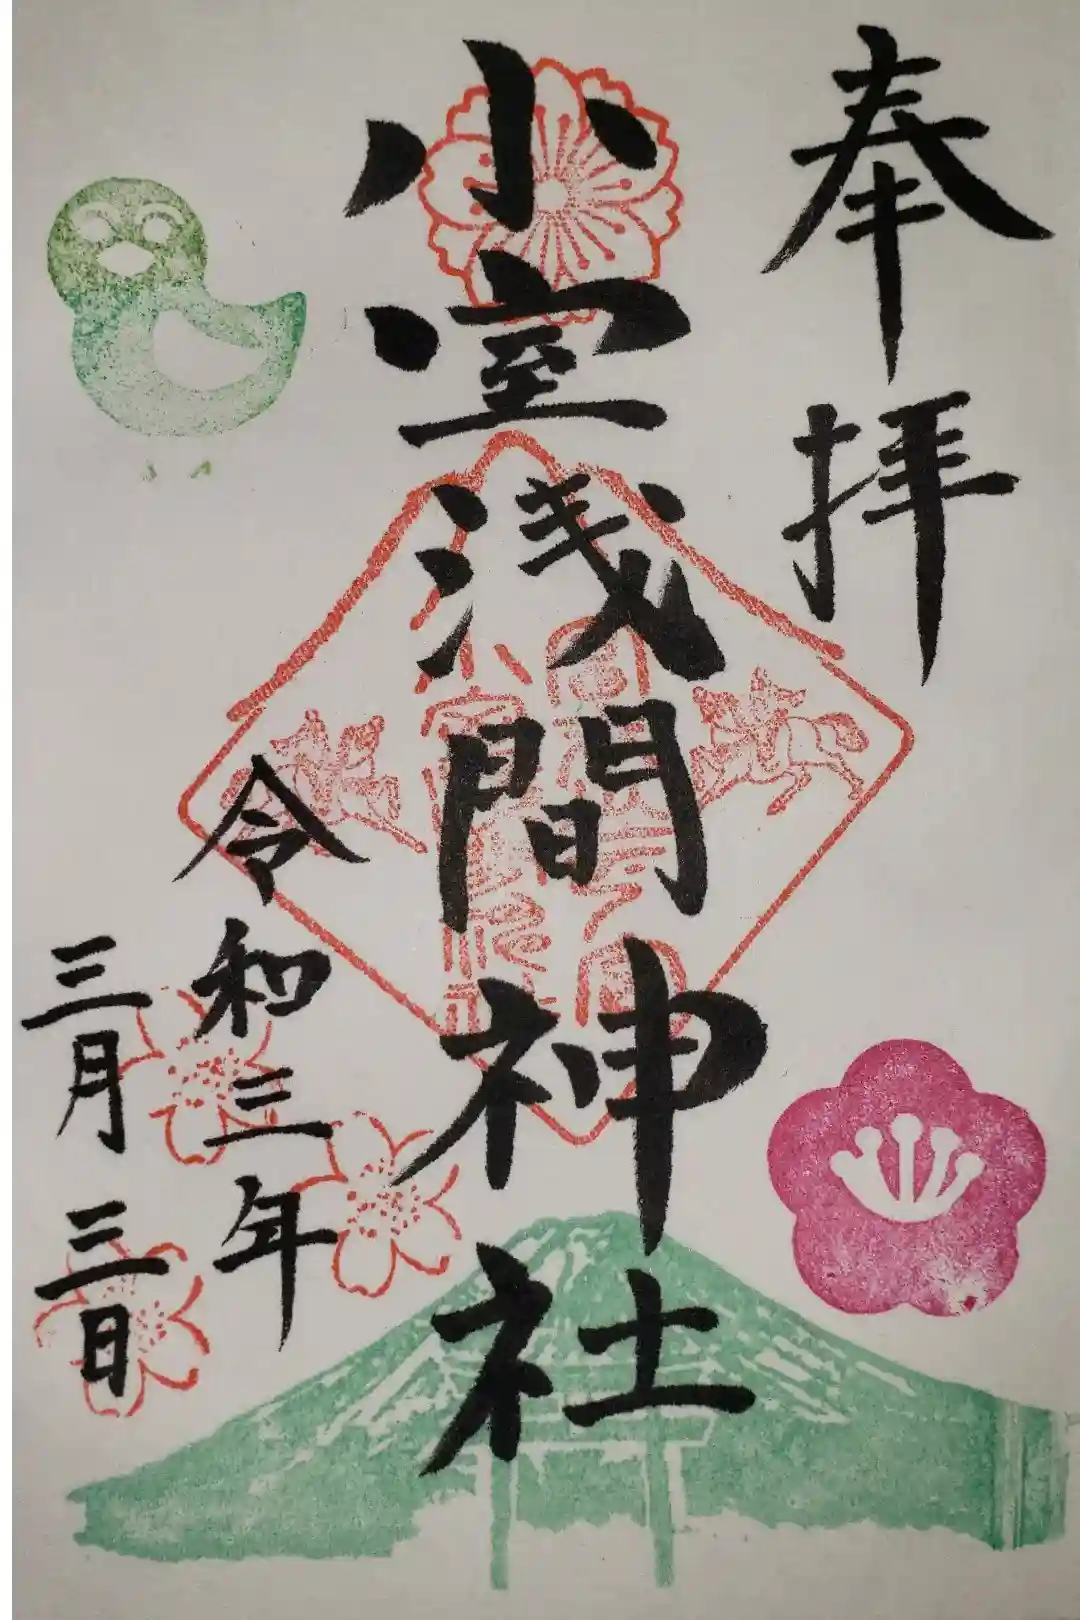 奉拝
小室浅間神社
令和三年
三月三日